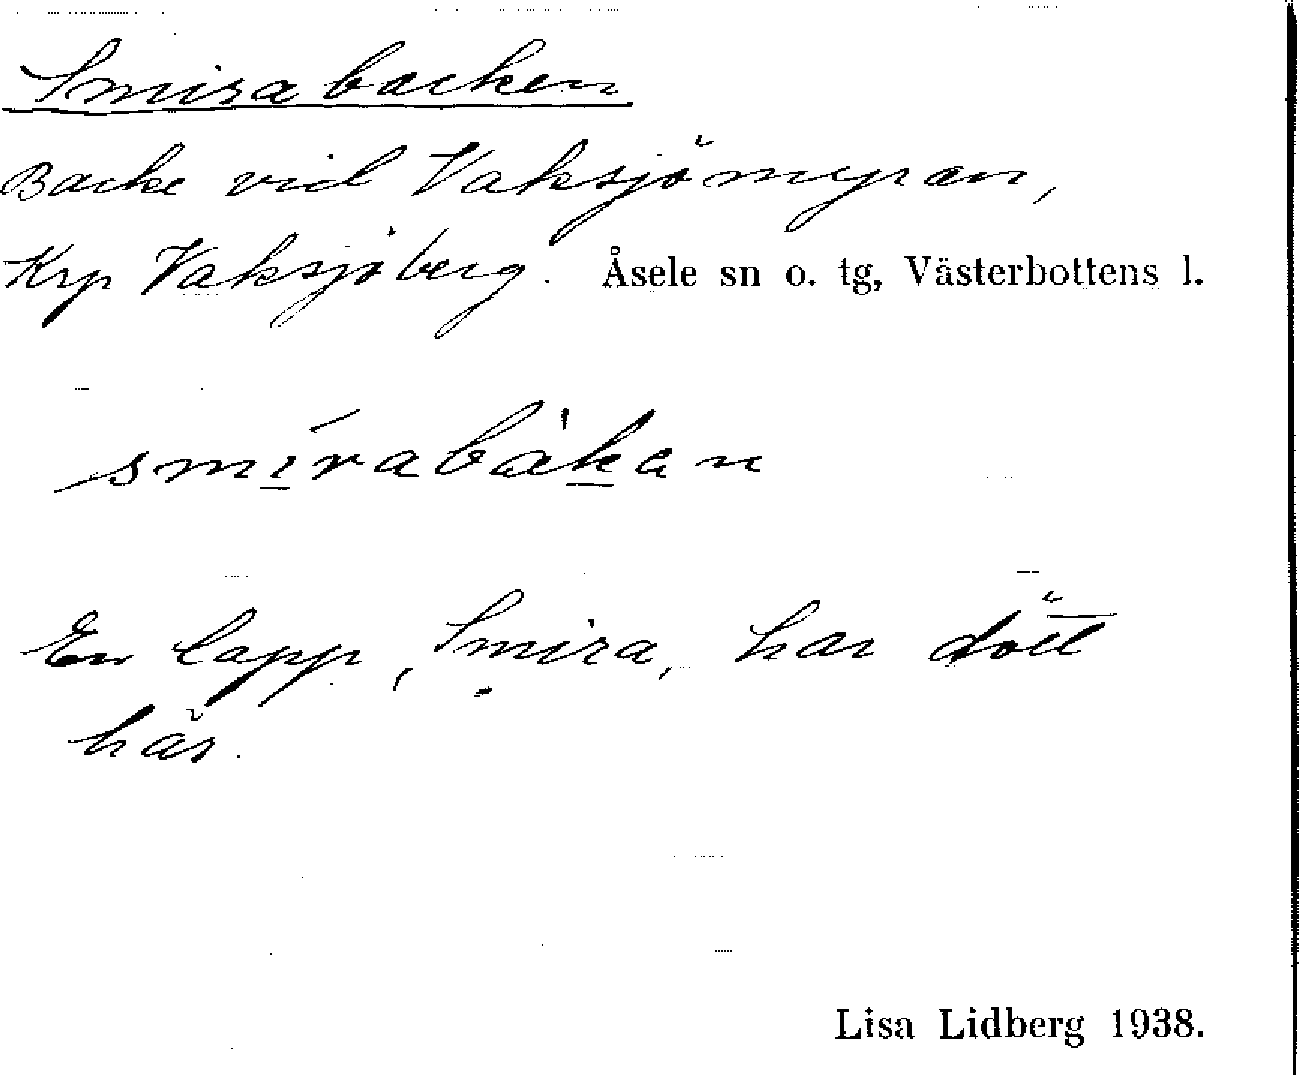 Smirabacken
Backe vid Vaksjömyran,
Krp Vaksjöberg. Åsele sn o. tg, Västerbottens l.
smírabàkan
En lapp, Smira, har dött
här.
Lisa Lidberg 1938.